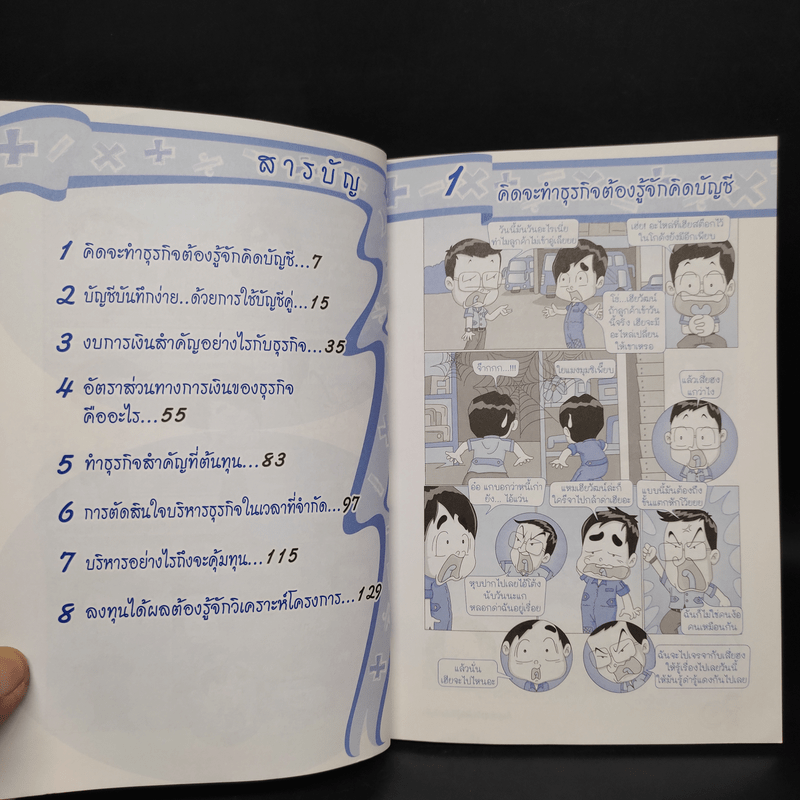 สารบัญ
1 คิดจะทำธุรกิจต้องรู้จักคิดบัญชี...7
2 บัญชีบันทึกง่าย..ด้วยการใช้บัญชีคู่...15
3 งบการเงินสำคัญอย่างไรกับธุรกิจ...35
4 อัตราส่วนทางการเงินของธุรกิจ
คืออะไร...55
5 ทำธุรกิจสำคัญที่ต้นทุน...83
6 การตัดสินใจบริหารธุรกิจในเวลาที่จำกัด...97
7 บริหารอย่างไรถึงจะคุ้มทุน...115
8 ลงทุนได้ผลต้องรู้จักวิเคราะห์โครงการ...129
1 คิดจะทำธุรกิจต้องรู้จักคิดบัญชี
วันนี้มันวันอะไรเนี่ย
ทำไมลูกค้าไม่เข้าอู่เลยยย
เฮ่ย! อะไหล่ที่เฮียสต๊อกไว้
ในโกดังยังมีอีกเพียบ
โธ่...เฮียวัฒน์
ถ้าลูกค้าเข้าวัน
นี้จริง เฮียจะมี
อะไหล่เปลี่ยน
ให้เขาเหรอ
จ๊ากกก...!!!
ใยแมงมุมซิเพียบ
แล้วเสี่ยฮง
แกว่าไง
อ๋อ แกบอกว่าหนี้เก่า
ยัง... ไอ้แว่น
แหมเฮียวัฒน์ล่ะก็
ใครจะไปกล้าด่าเฮียอะ
แบบนี้มันต้องถึง
ขั้นแตกหักโว้ยยย
หุบปากไปเลยไอ้โต้ง
นับวันนะแก
หลอกด่าฉันอยู่เรื่อย
ฉันก็ไม่ใช่คนง้อ
คนเหมือนกัน
แล้วนั่น
เฮียจะไปไหนอะ
ฉันจะไปเจรจากับเสี่ยฮง
ให้รู้เรื่องไปเลยวันนี้
ให้มันรู้ดำรู้แดงกันไปเลย